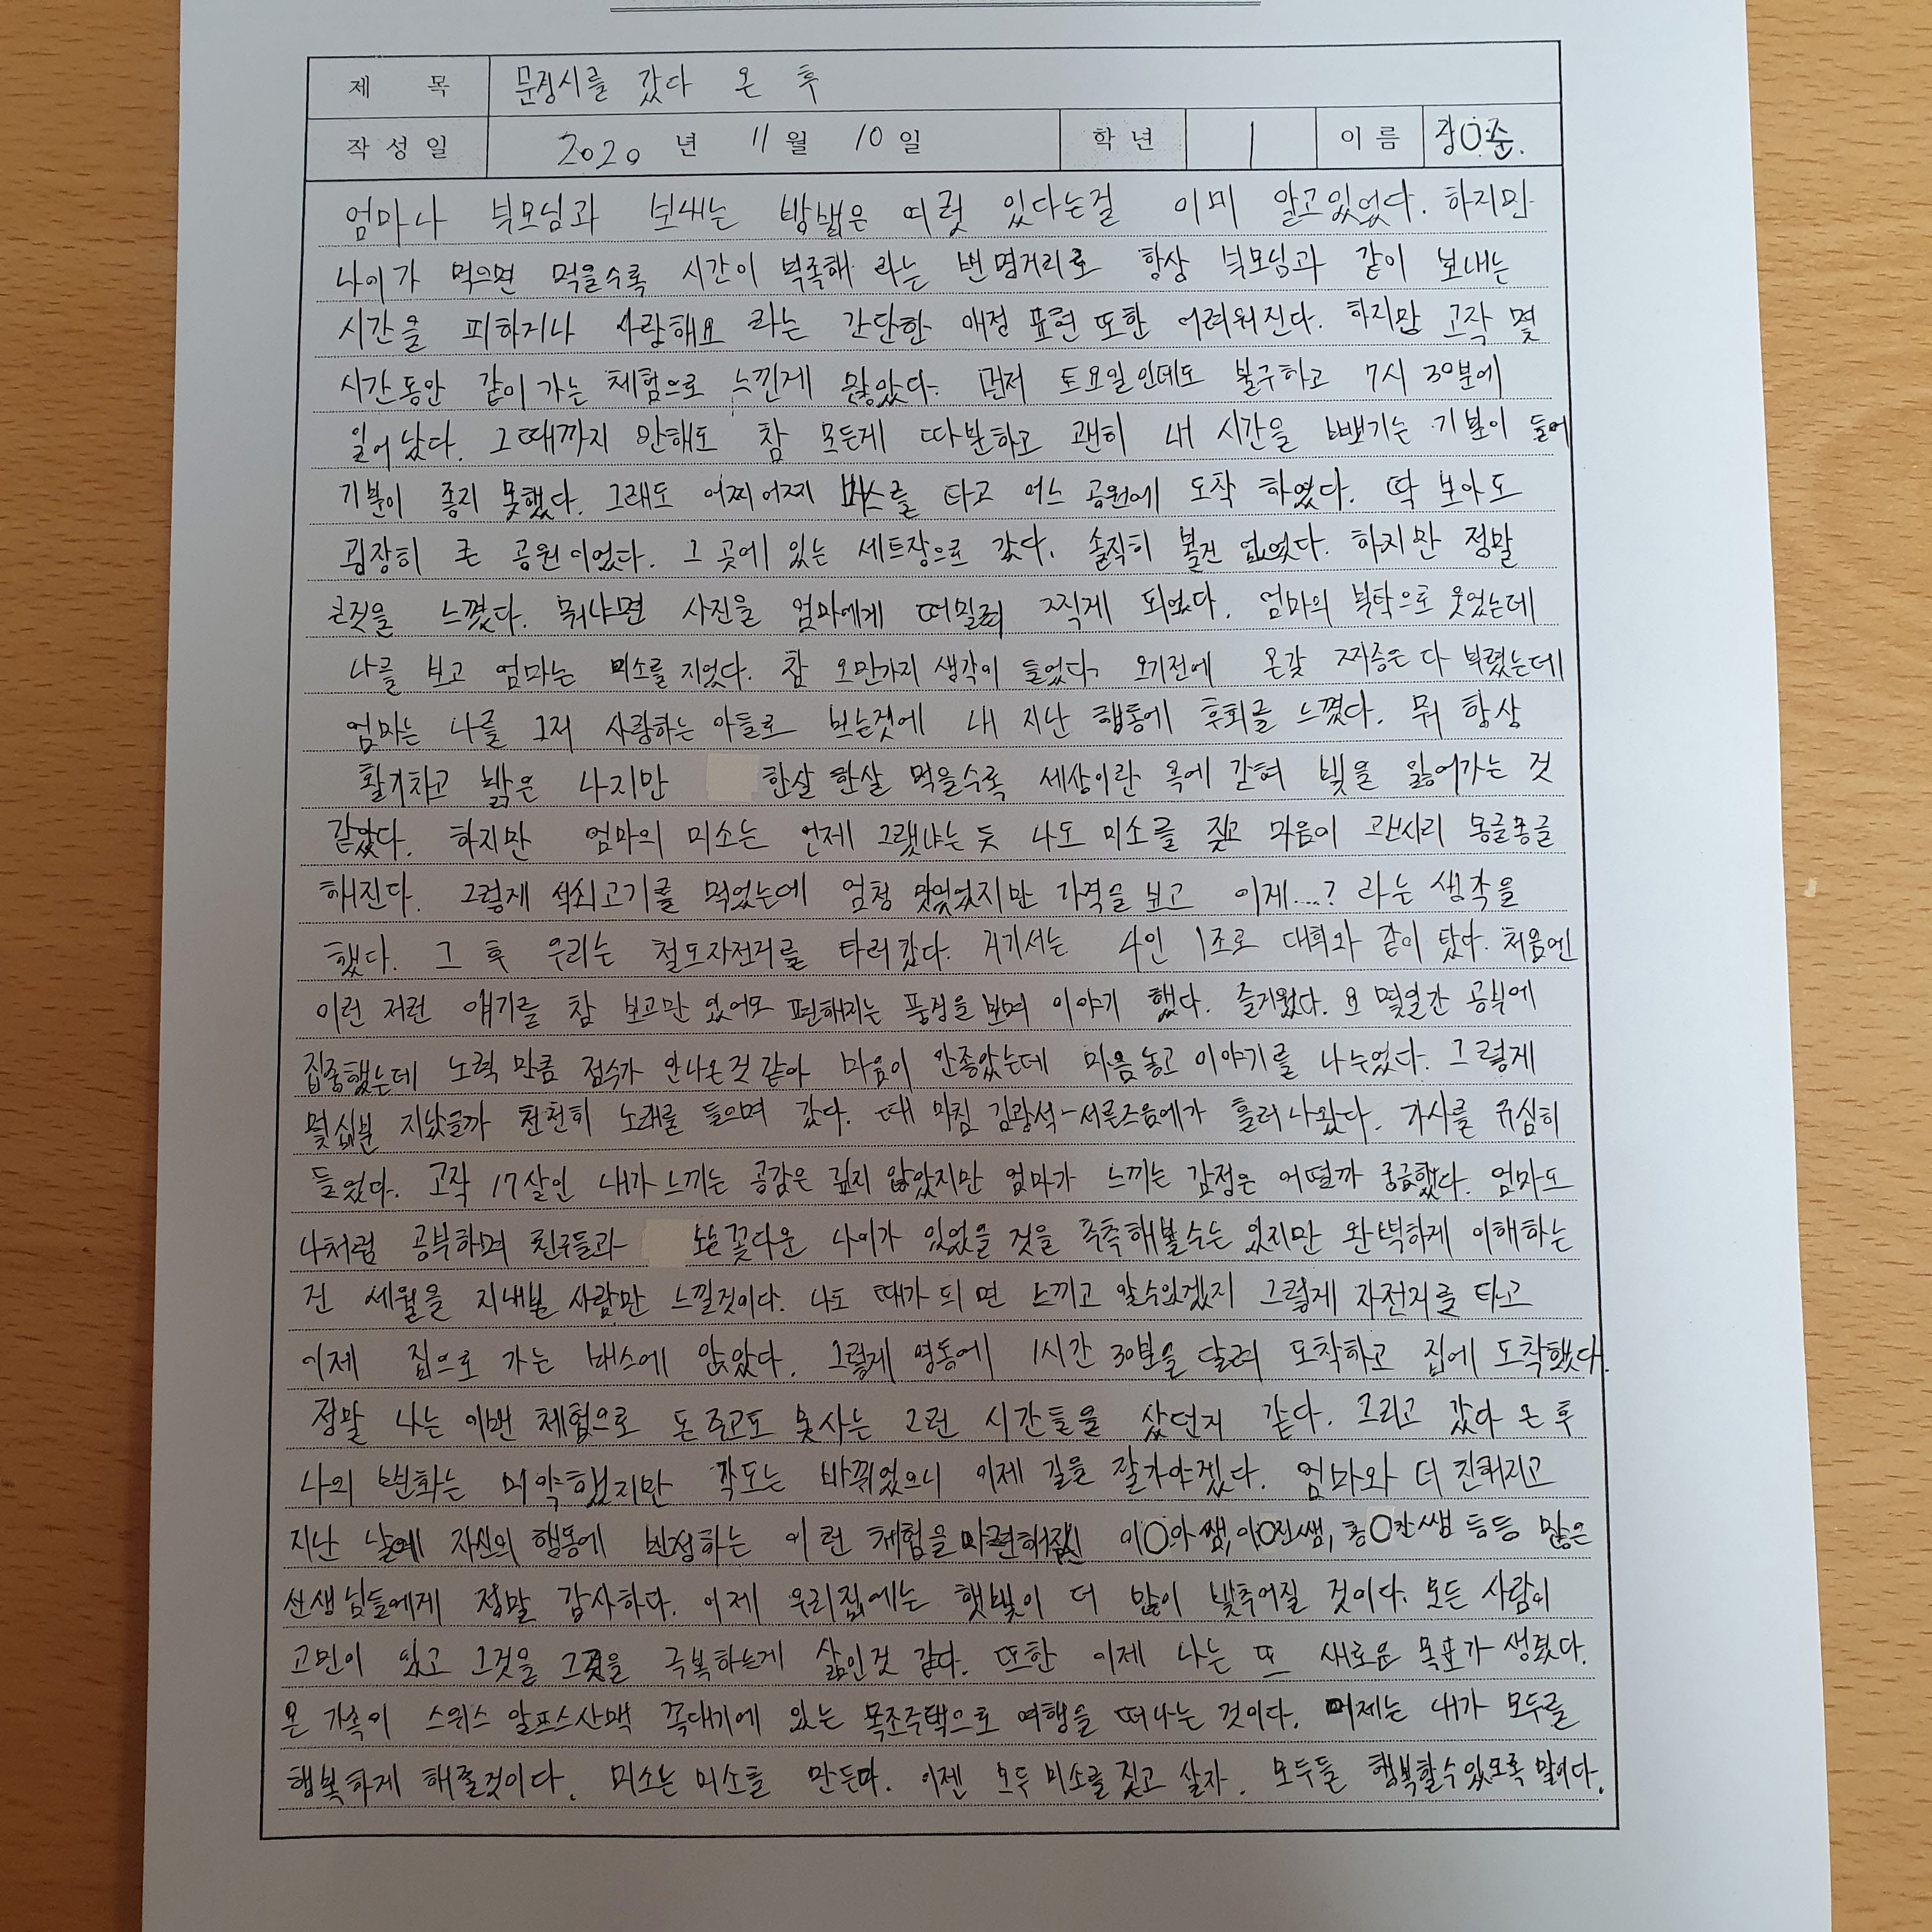 제 목 문경시를 갔다 온 후
작성일 2020 년 11 월 10 일 학년 1 이름 장O준.
엄마나 부모님과 보내는 방법은 여럿 있다는걸 이미 알고있었다. 하지만
나이가 먹으면 먹을수록 시간이 부족해 라는 변명거리로 항상 부모님과 같이 보내는
시간을 피하거나 사랑해요 라는 간단한 애정 표현 또한 어려워진다. 하지만 고작 몇
시간동안 같이 가는 체험으로 느낀게 많았다. 먼저 토요일인데도 불구하고 7시 30분에
일어났다. 그때까지 만해도 참 모든게 따분하고 괜히 내 시간을 뺏기는 기분이 들어
기분이 좋지 못했다. 그래도 어찌어찌 버스를 타고 어느 공원에 도착 하였다. 딱 보아도
굉장히 큰 공원이었다. 그 곳에 있는 세트장으로 갔다. 솔직히 볼건 없었다. 하지만 정말
큰것을 느꼈다. 뭐냐면 사진을 엄마에게 떠밀려 찍게 되었다. 엄마의 부탁으로 웃었는데
나를 보고 엄마는 미소를 지었다. 참 오만가지 생각이 들었다. 오기전에 온갖 짜증은 다 부렸는데
엄마는 나를 그저 사랑하는 아들로 보는것에 내 지난 행동에 후회를 느꼈다. 뭐 항상
활기차고 밝은 나지만 한살 한살 먹을수록 세상이란 옥에 갇혀 빛을 잃어가는 것
같았다. 하지만 엄마의 미소는 언제 그랬냐는 듯 나도 미소를 짓고 마음이 괸시리 몽글몽글
해진다. 그렇게 석쇠고기를 먹었는데 엄청 맛있었지만 가격을 보고 이제....? 라는 생각을
했다. 그 후 우리는 철도자전거를 타러갔다. 거기서는 4인 1조로 대휘와 같이 탔다. 처음엔
이런 저런 얘기를 참 보고만 있어도 편해지는 풍경을 보며 이야기 했다. 즐거웠다. 요 몇일간 공부에
집중했는데 노력 만큼 점수가 안나온것 같아 마음이 안좋았는데 마음놓고 이야기를 나누었다. 그렇게
몇십분 지났을까 천천히 노래를 들으며 갔다. 때 마침 김광석-서른즈음에가 흘러나왔다. 가사를 유심히
들었다. 고작 17살인 내가 느끼는 공감은 깊지 않았지만 엄마가 느끼는 감정은 어떨까 궁금했다. 엄마도
나처럼 공부하며 친구들과 노는 꽃다운 나이가 있었을 것을 추측해볼수는 있지만 완벽하게 이해하는
건 세월을 지내본 사람만 느낄것이다. 나도 때가 되면 느끼고 알수있겠지 그렇게 자전거를 타고
이제 집으로 가는 버스에 앉았다. 그렇게 영동에 1시간 30분을 달려 도착하고 집에 도착했다.
정말 나는 이번 체험으로 돈주고도 못사는 그런 시간들을 샀던거 같다. 그리고 갔다 온 후
나의 변화는 미약했지만 각도는 바뀌었으니 이제 길을 잘가야겠다. 엄마와 더 친해지고
지난 날에 자신의 행동에 반성하는 이런 체험을 마련해주신 이O아쌤, 이O진쌤, O찬쌤 등등 많은
선생님들에게 정말 감사하다. 이제 우리집에는 햇빛이 더 많이 빛추어질 것이다. 모든 사람이
고민이 있고 그것을 그것을 극복하는게 삶인것 같다. 또한 이제 나는 또 새로운 목표가 생겼다.
온 가족이 스위스 알프스산맥 꼭대기에 있는 목조주택으로 여행을 떠나는 것이다. 이제는 내가 모두를
행복하게 해줄것이다. 미소는 미소를 만든다. 이젠 모두 미소를 짓고 살자. 모두들 행복할수있도록 말이다.